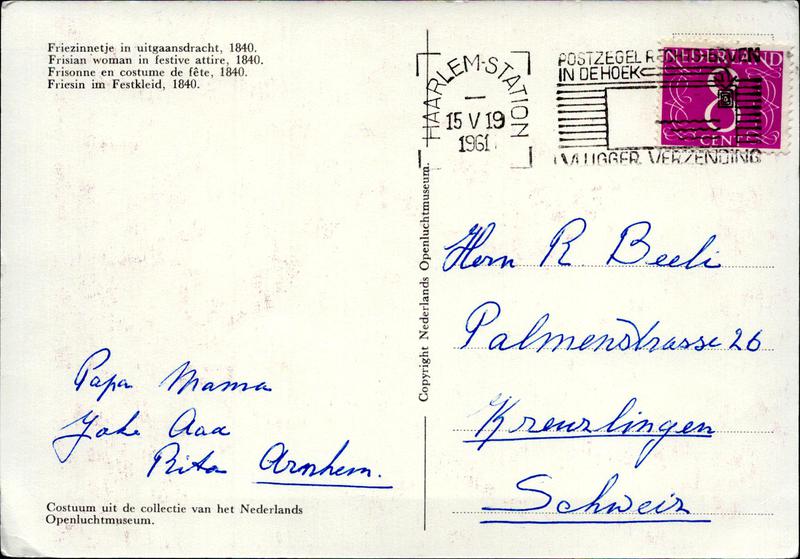 Friezinnetje in uitgaansdracht, 1840.
Frisian woman in festive attire, 1840.
Frisonne en costume de fête, 1840.
Friesin im Festkleid, 1840.
HAARLEM-STATION
15 V 19
1961
POSTZEGEL RECHTSBOVEN
IN DE HOEK
VLUGGER VERZENDING
NEDERLAND
8
CENT
Copyright Nederlands Openluchtmuseum.
Herrn R. Beeli
Palmenstrasse 26
Kreuzlingen
Schweiz
Papa Mama
Joke Aaa
Rita Arnhem.
Costuum uit de collectie van het Nederlands
Openluchtmuseum.